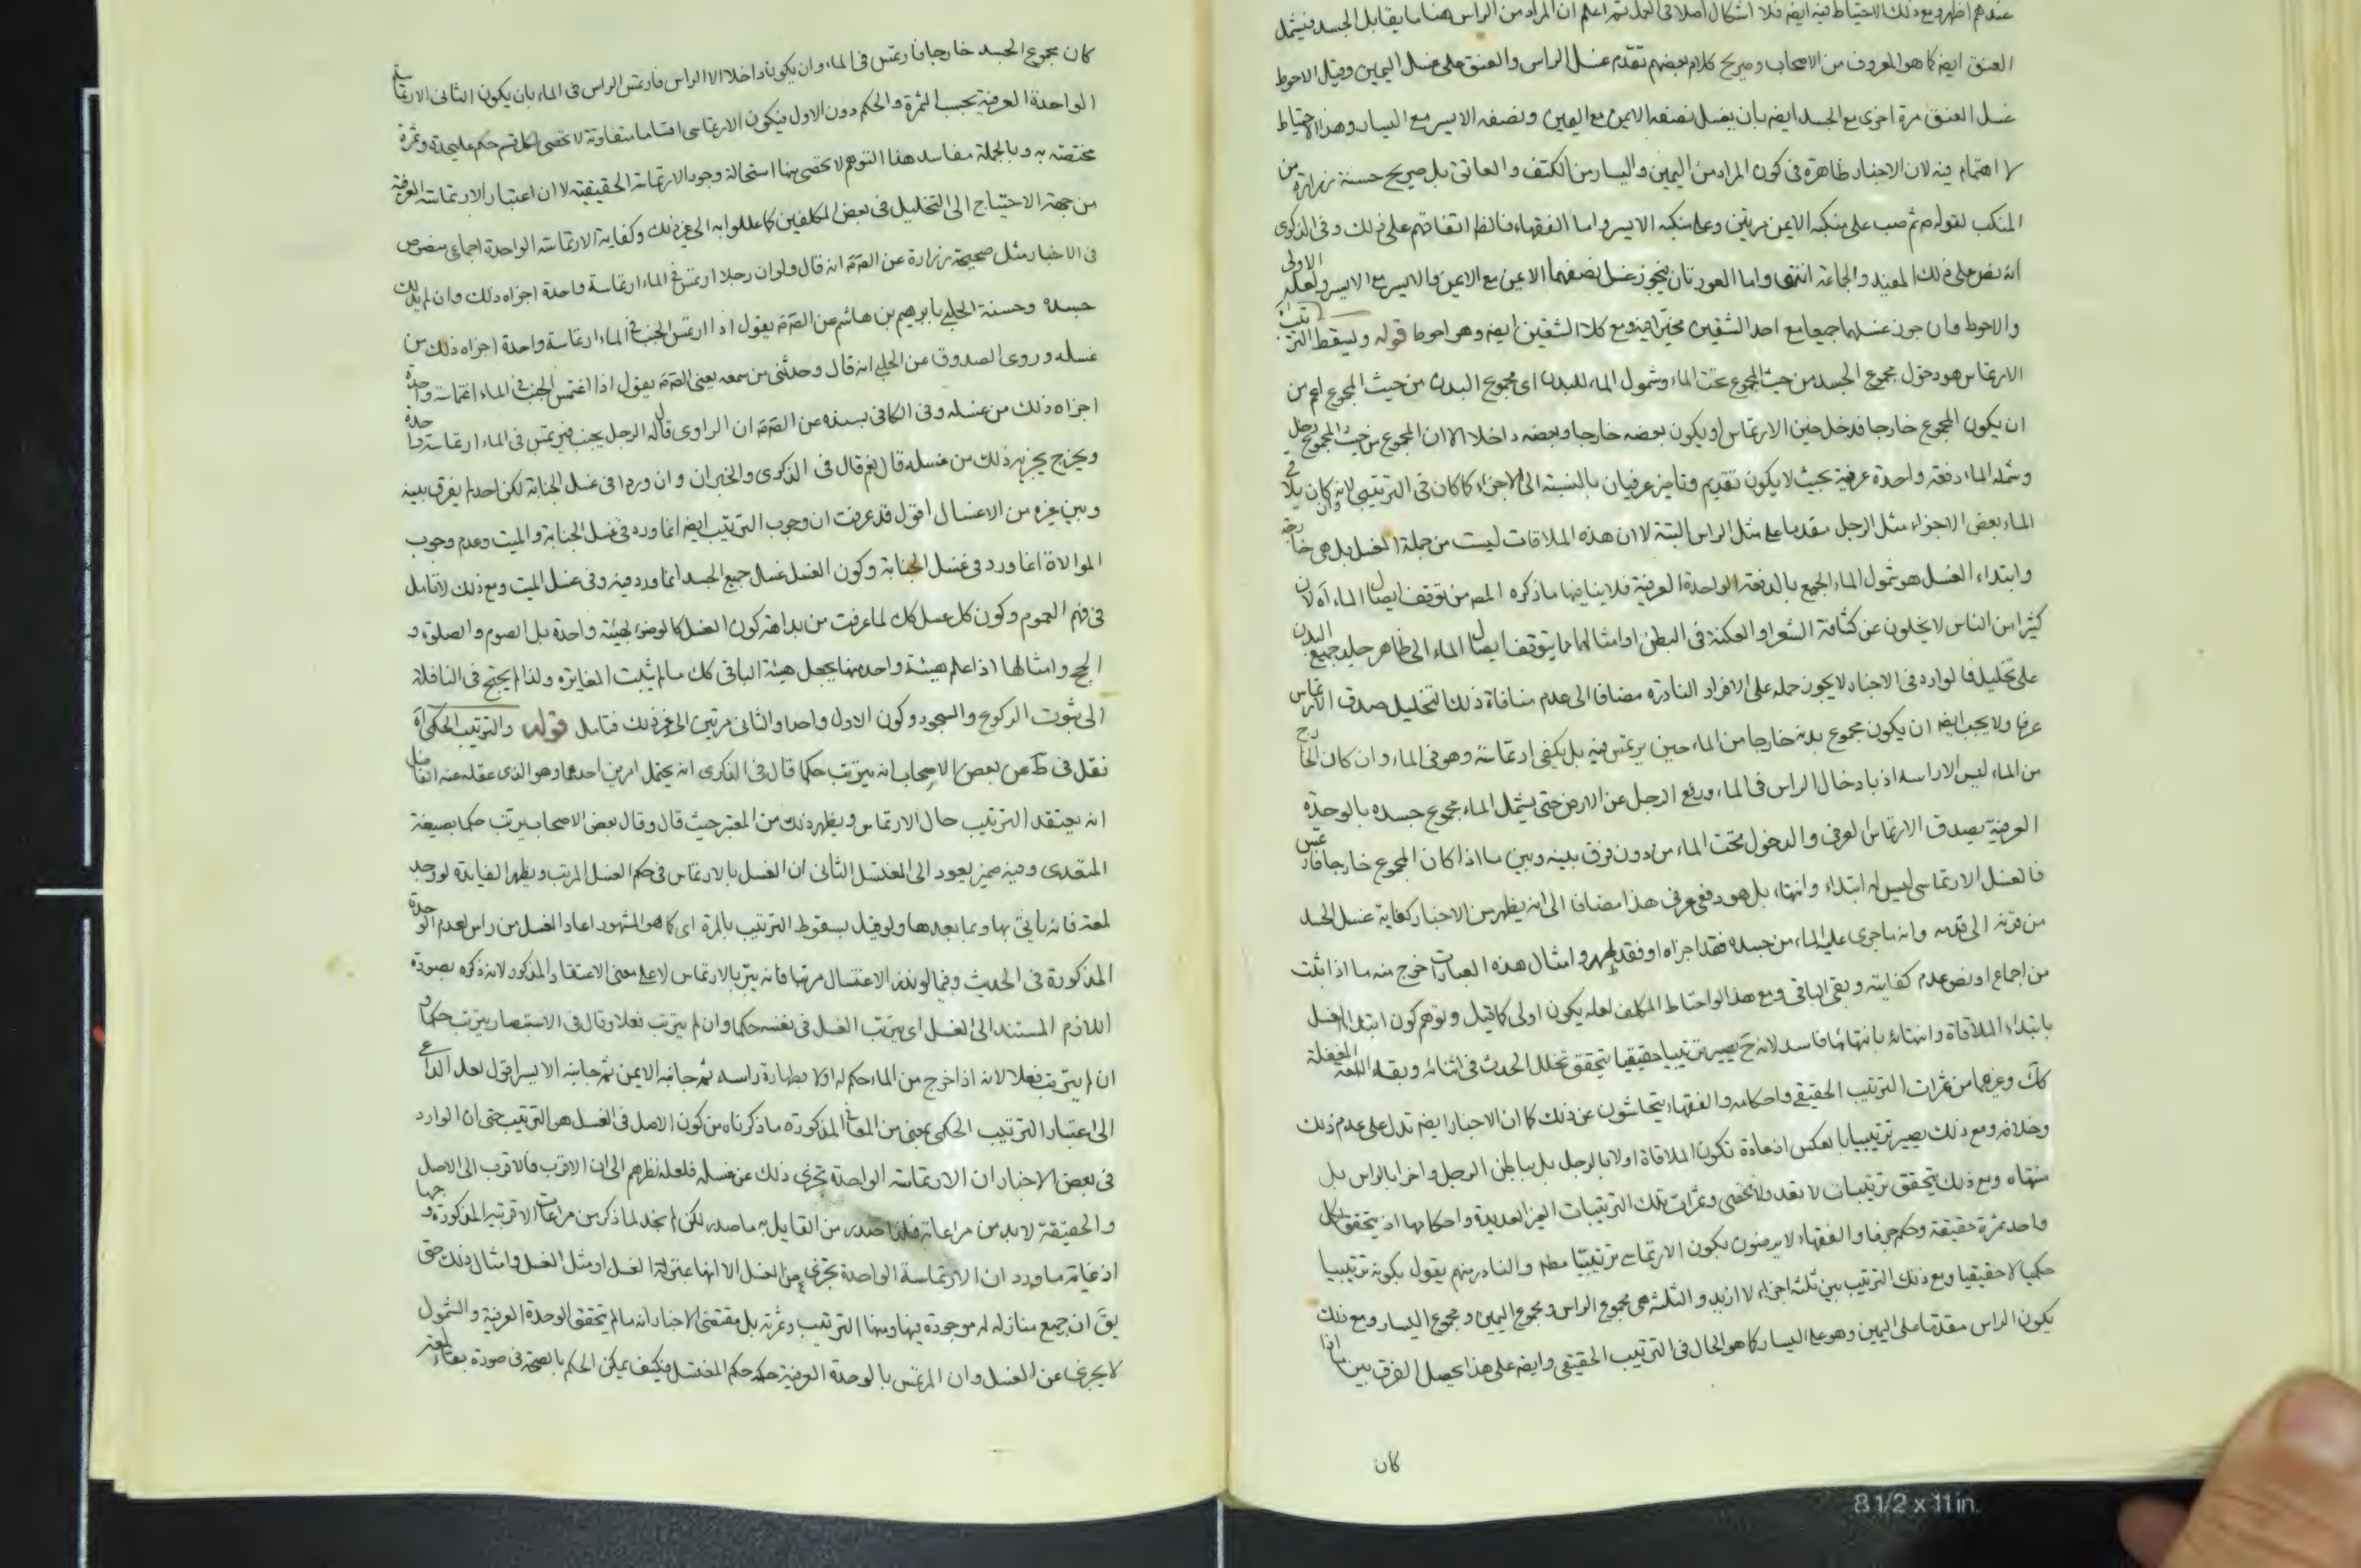 عندهم اظهر ومع ذلك الاحتياط فيه ايضه فلا اشكال اصلا فى العمل ثم اعلم ان المراد من الراس هنا ما يقابل الجسد فيشمل
العنق ايضه كما هو المعروف من الاصحاب وصريح كلام بعضهم تقدم غسل الراس والعنق على غسل اليمين وقيل الاحوط
غسل العنق مرة اخرى مع الجسد ايضه بان يغسل نصفه الايمن مع اليمين ونصفه الايسر مع اليسار وهذا الاحتياط
لا اهتمام فيه لان الاخبار ظاهرة فى كون المراد من اليمين واليسار من الكتف والعاتق بل صريح حسنة زرارة من
المنكب لقوله ثم صب على منكبه الايمن مرتين وعلى منكبه الايسر واما الفقهاء فالظ اتفاقهم على ذلك وفى الذكرى
انه نص على ذلك المفيد والجماعة انتهى واما العورتان فيجوز غسل نصفهما الايمن مع الايمن والايسر مع الايسر ولعله الاولى
والاحوط وان جوز غسلهما جميعا مع احد الشقين مخيرا فيه ومع كلا الشقين ايضه وهو احوط قوله ويسقط الترتيب اه
الارتماس هو دخول مجموع الجسد من حيث المجموع تحت الماء وشمول الماء للبدن اى مجموع البدن من حيث المجموع اعم من
ان يكون المجموع خارجا فدخل حين الارتماس او يكون بعضه خارجا وبعضه داخلا الا ان المجموع من حيث المجموع دخل
وشمله الماء دفعة واحدة عرفية بحيث لا يكون تقديم وتاخير عرفيان بالنسبة الى الاجزاء كما كان فى الترتيبى لانه وان كان يلاقى
الماء بعض الاجزاء مثل الرجل مقدما على مثل الراس البتة لا ان هذه الملاقات ليست من جملة الغسل بل هى خارجة
وابتداء الغسل هو شمول الماء الجمع بالدفعة الواحدة العرفية فلا ينافيها ما ذكره المص من توقف ايصال الماء اه لان
كثيرا من الناس لا يخلون عن كثافة الشعر او العكنة فى البطن او امثالهما مما يتوقف ايصال الماء الى ظاهر جلد جميع البدن
على تخليل فالوارد فى الاخبار لا يجوز حمله على الافراد النادرة مضافا الى عدم منافاة ذلك التخليل صدق الارتماس
عرفا ولا يجب ايضه ان يكون مجموع بدنه خارجا من الماء حين يرتمس فيه بل يكفى ارتماسة وهو فى الماء وان كان الخارج
من الماء ليس الا راسه اذ بادخال الراس فى الماء ورفع الرجل عن الارض حتى يشمل الماء مجموع جسده بالوحدة
العرفية يصدق الارتماس العرفى والدخول تحت الماء من دون فرق بينه وبين ما اذا كان المجموع خارجا فارتمس
فالغسل الارتماسى ليس له ابتداء وانتهاء بل هو دفعى عرفى هذا مضافا الى انه يظهر من الاخبار كفاية غسل الجسد
من قرنه الى قدمه وانه ما جرى عليه الماء من جسده فقد اجزاه او فقد طهر وامثال هذه العبارات خرج منه ما اذا ثبت
من اجماع او نص عدم كفايته وبقى الباقى ومع هذا لو احتاط المكلف لعله يكون اولى كما قيل وتوهم كون ابتداء الغسل
بابتداء الملاقاة وانتهائه بانتهائها فاسد لانه ح يصير ترتيبيا حقيقيا يتحقق تخلل الحدث فى اثنائه وبقاء اللمعة المغفلة
كك وغيرهما من ثمرات الترتيب الحقيقى واحكامه والفقهاء يتحاشون عن ذلك كما ان الاخبار ايضه تدل على عدم ذلك
وخلافه ومع ذلك يصير ترتيبيا بالعكس اذ عادة تكون الملاقاة اولا بالرجل بل بباطن الرجل واخرا بالراس بل
منتهاه ومع ذلك يتحقق ترتيبات لا تعد ولا تحصى وثمرات تلك الترتيبات الغير العديدة واحكامها اذ يتحقق لكل
واحد ثمرة حقيقة وحكم جزما والفقهاء لا يرضون بكون الارتماسى ترتيبيا مطم والنادر منهم يقول بكونه ترتيبيا
حكميا لا حقيقيا ومع ذلك الترتيب بين ثلثة اجزاء لا ازيد والثلثة هى مجموع الراس ومجموع اليمين ومجموع اليسار ومع ذلك
يكون الراس مقدما على اليمين وهو على اليسار كما هو الحال فى الترتيب الحقيقى وايضه على هذا يحصل الفرق بين ما اذا
كان
كان مجموع الجسد خارجا فارتمس فى الماء وان يكون داخلا الا الراس فارتمس الراس فى الماء بان يكون الثانى الارتماسة
الواحدة العرفية بحسب الثمرة والحكم دون الاول فيكون الارتماسى اقساما متفاوتة لا تحصى لكل قسم حكم عليحده وثمرة
مختصة به وبالجملة مفاسد هذا التوهم لا تحصى منها استحالة وجود الارتماسة الحقيقية لا ان اعتبار الارتماسة العرفية
من جهة الاحتياج الى التخليل فى بعض المكلفين كما عللوا به الى غير ذلك وكفاية الارتماسة الواحدة اجماعى منصوص
فى الاخبار مثل صحيحة زرارة عن الصه انه قال ولو ان رجلا ارتمس فى الماء ارتماسة واحدة اجزاه ذلك وان لم يدلك
جسده وحسنة الحلبى بابرهيم بن هاشم عن الصه يقول اذا ارتمس الجنب فى الماء ارتماسة واحدة اجزاه ذلك من
غسله وروى الصدوق عن الحلبى انه قال وحدثنى من سمعه يعنى الصه يقول اذا اغتمس الجنب فى الماء اغتماسة واحدة
اجزاه ذلك من غسله وفى الكافى بسنده عن الصه ان الراوى قال له الرجل يجنب فيرتمس فى الماء ارتماسة واحدة
ويخرج يجزيه ذلك من غسله قال نعم قال فى الذكرى والخبران وان وردا فى غسل الجنابة لكن احد لم يفرق بينه
وبين غيره من الاغسال اقول قد عرفت ان وجوب الترتيب ايضه انما ورد فى غسل الجنابة والميت وعدم وجوب
الموالاة انما ورد فى غسل الجنابة وكون الغسل غسل جميع الجسد انما ورد فيه وفى غسل الميت ومع ذلك لا تامل
فى فهم العموم وكون كل غسل كك لما عرفت من بداهة كون الغسل كالوضوء لهيئة واحدة بل الصوم والصلوة و
الحج وامثالها اذا علم هيئة واحد منها يجعل هيئة الباقى كك ما لم يثبت المغايرة ولذا لم يحتج فى النافلة
الى ثبوت الركوع والسجود وكون الاول واحدا والثانى مرتين الى غير ذلك فتامل قوله والترتيب الحكمى اه
نقل فى ط عن بعض الاصحاب انه يترتب حكما قال فى الذكرى انه يحتمل امرين احدهما وهو الذى عقله عنه الفاضل
انه يعتقد الترتيب حال الارتماس ويظهر ذلك من المعتبر حيث قال وقال بعض الاصحاب يرتب حكما بصيغة
المتعدى وفيه ضمير يعود الى المغتسل الثانى ان الغسل بالارتماس فى حكم الغسل المرتب ويظهر الفايدة لو وجد
لمعة فانه ياتى بها وبما بعدها ولو قيل بسقوط الترتيب بالمرة اى كما هو المشهور اعاد الغسل من راس لعدم الوحدة
المذكورة فى الحديث وفيما لو نذر الاغتسال مرتبا فانه يبر بالارتماس لا على معنى الاعتقاد المذكور لانه ذكره بصورة
اللازم المستند الى الغسل اى يترتب الغسل فى نفسه حكما وان لم يترتب فعلا وقال فى الاستبصار يترتب حكما و
ان لم يترتب فعلا لانه اذا خرج من الماء حكم له اولا بطهارة راسه ثم جانبه الايمن ثم جانبه الايسر اقول لعل الداعى
الى اعتبار الترتيب الحكمى بمعنى من المعانى المذكورة ما ذكرناه من كون الاصل فى الغسل هو الترتيب حتى ان الوارد
فى بعض الاخبار ان الارتماسة الواحدة تجزى ذلك عن غسله فلعله نظرهم الى ان الاقرب فالاقرب الى الاصل
والحقيقة لا بد من مراعاته فلذا صدر من القايل به ما صدر لكن لم نجد لما ذكر من مراعات الاقربية المذكورة وجها
اذ غاية ما ورد ان الارتماسة الواحدة تجزى عن الغسل الا انها بمنزلة الغسل او مثل الغسل وامثال ذلك حتى
يق ان جميع منازله له موجودة فيها ومنها الترتيب وثمرته بل مقتضى الاخبار انه ما لم يتحقق الوحدة العرفية والشمول
لا يجزى عن الغسل وان المرتمس بالوحدة العرفية حكمه حكم المغتسل فكيف يمكن الحكم بالصحة فى صورة بقاء لمعة
8 1/2 x 11 in.